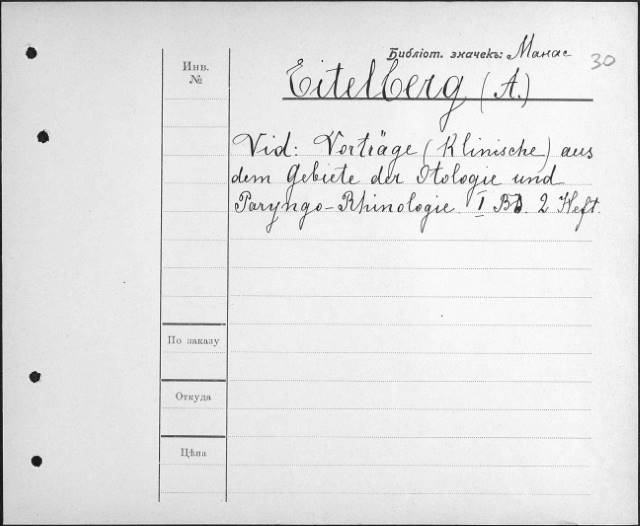 Библіот. значекъ: Манас
30
Инв.
№
Eitelberg (A.)
Vid: Vorträge (Klinische) aus
dem Gebiete der Otologie und
Paryngo-Rhinologie. I Bd. 2 Heft.
По заказу
Откуда
Цѣна